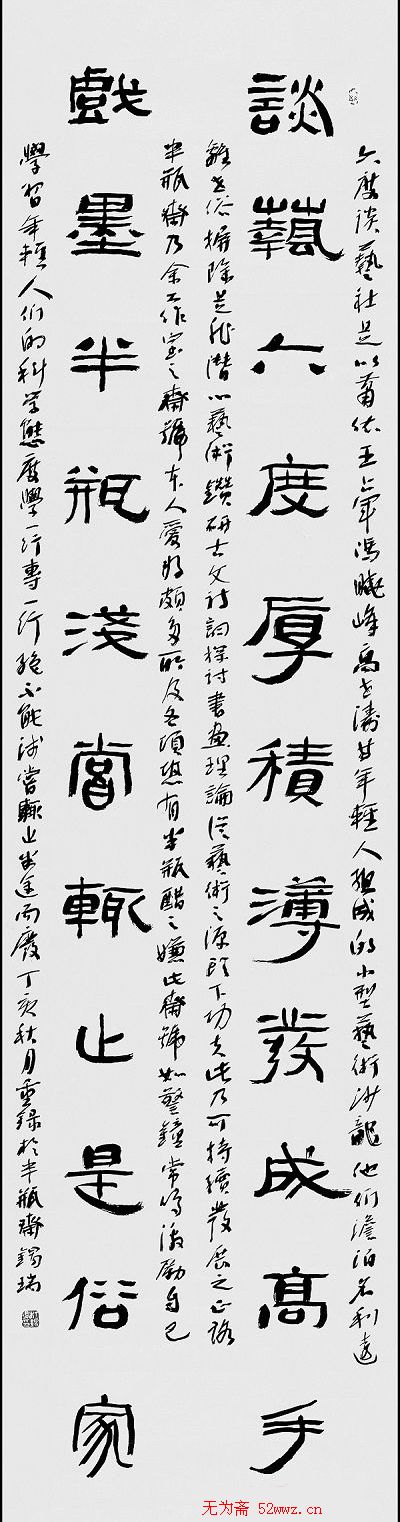 六度談藝社是以蕭王軍馮曉峰高世濤年輕人組成的小型藝術沙龍他們澹泊名利遠
談藝六度厚積薄發成高手
離世俗摒除是非潛心藝術鑽研古文詩詞探討書畫理論從藝術之源頭下功夫此乃可持續發展之正路
半瓶齋乃余工作室之齋號本人愛好頗多所及各項恐有半瓶醋之嫌此齋號如警鐘常鳴激勵自己
戲墨半瓶淺嘗輒止是俗家
學習年輕人們的科學態度學一行專一行絕不能淺嘗輒止半途而廢丁亥秋月重錄於半瓶齋錫瑞
无为斋 52wwz.cn